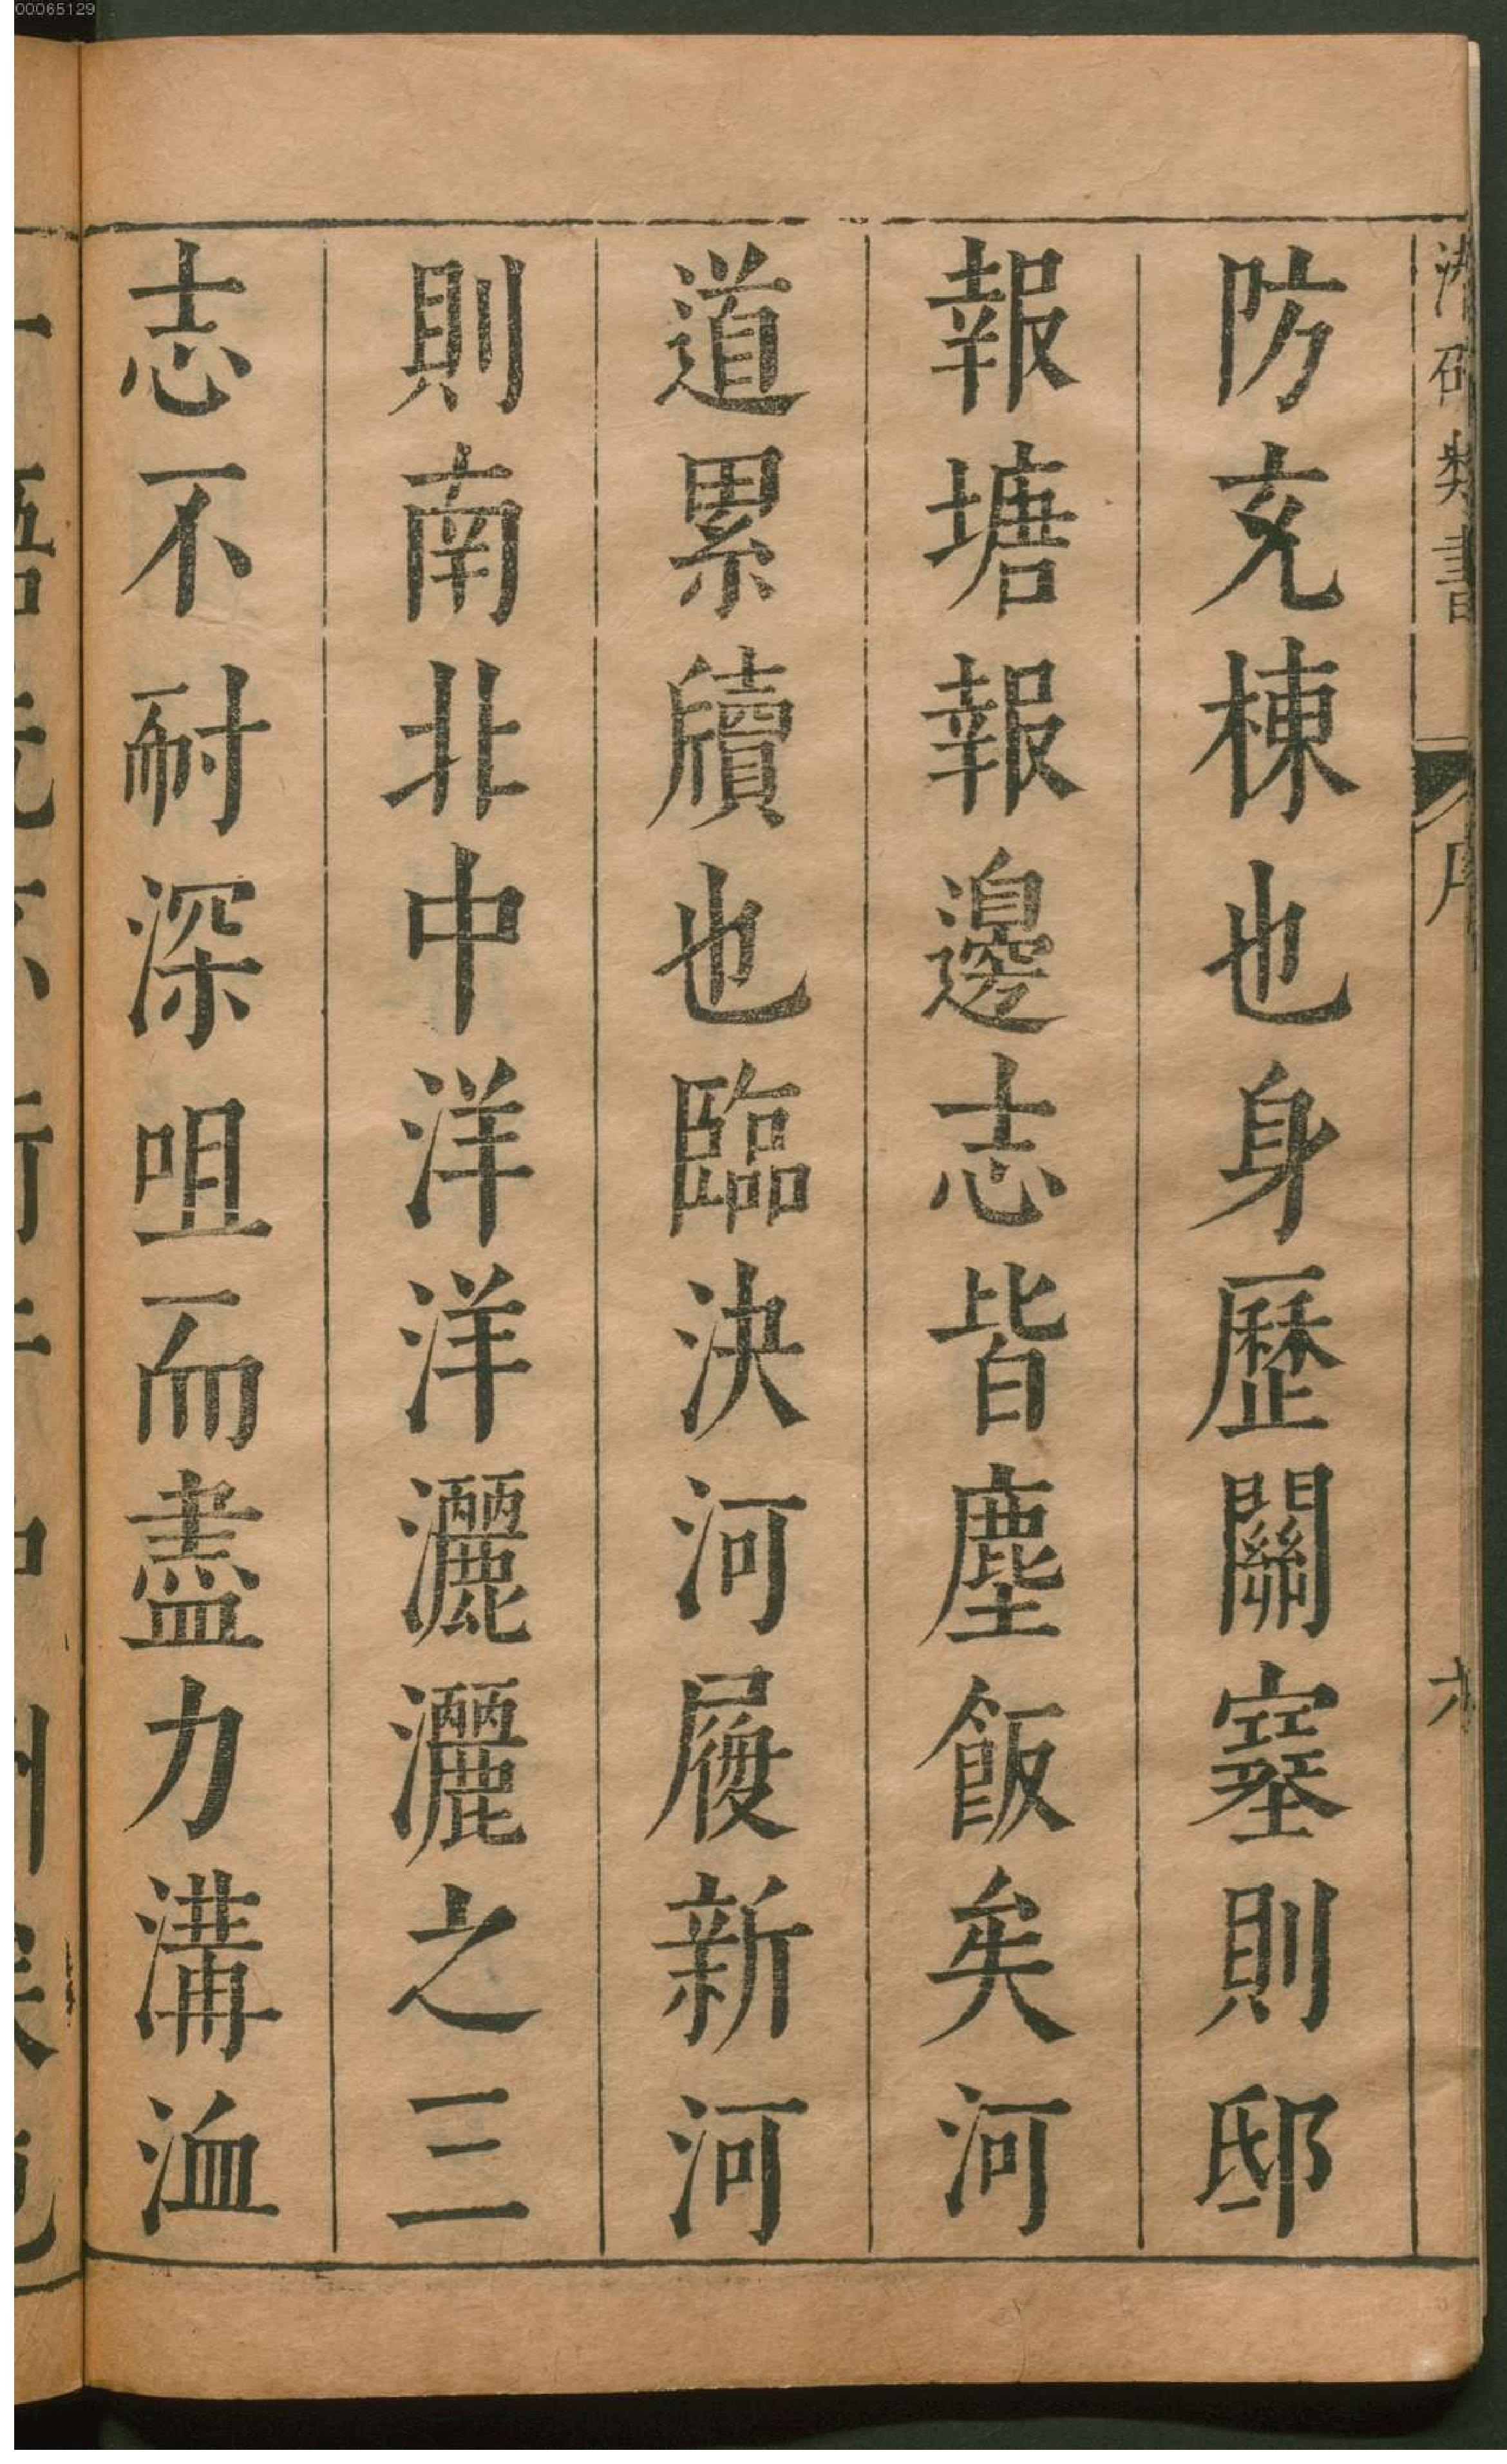 00065129
書 序 六
防充棟也身歷關塞則邸
報塘報邊志皆塵飯矣河
道累牘也臨決河履新河
則南北中洋洋灑灑之三
志不耐深咀而盡力溝洫